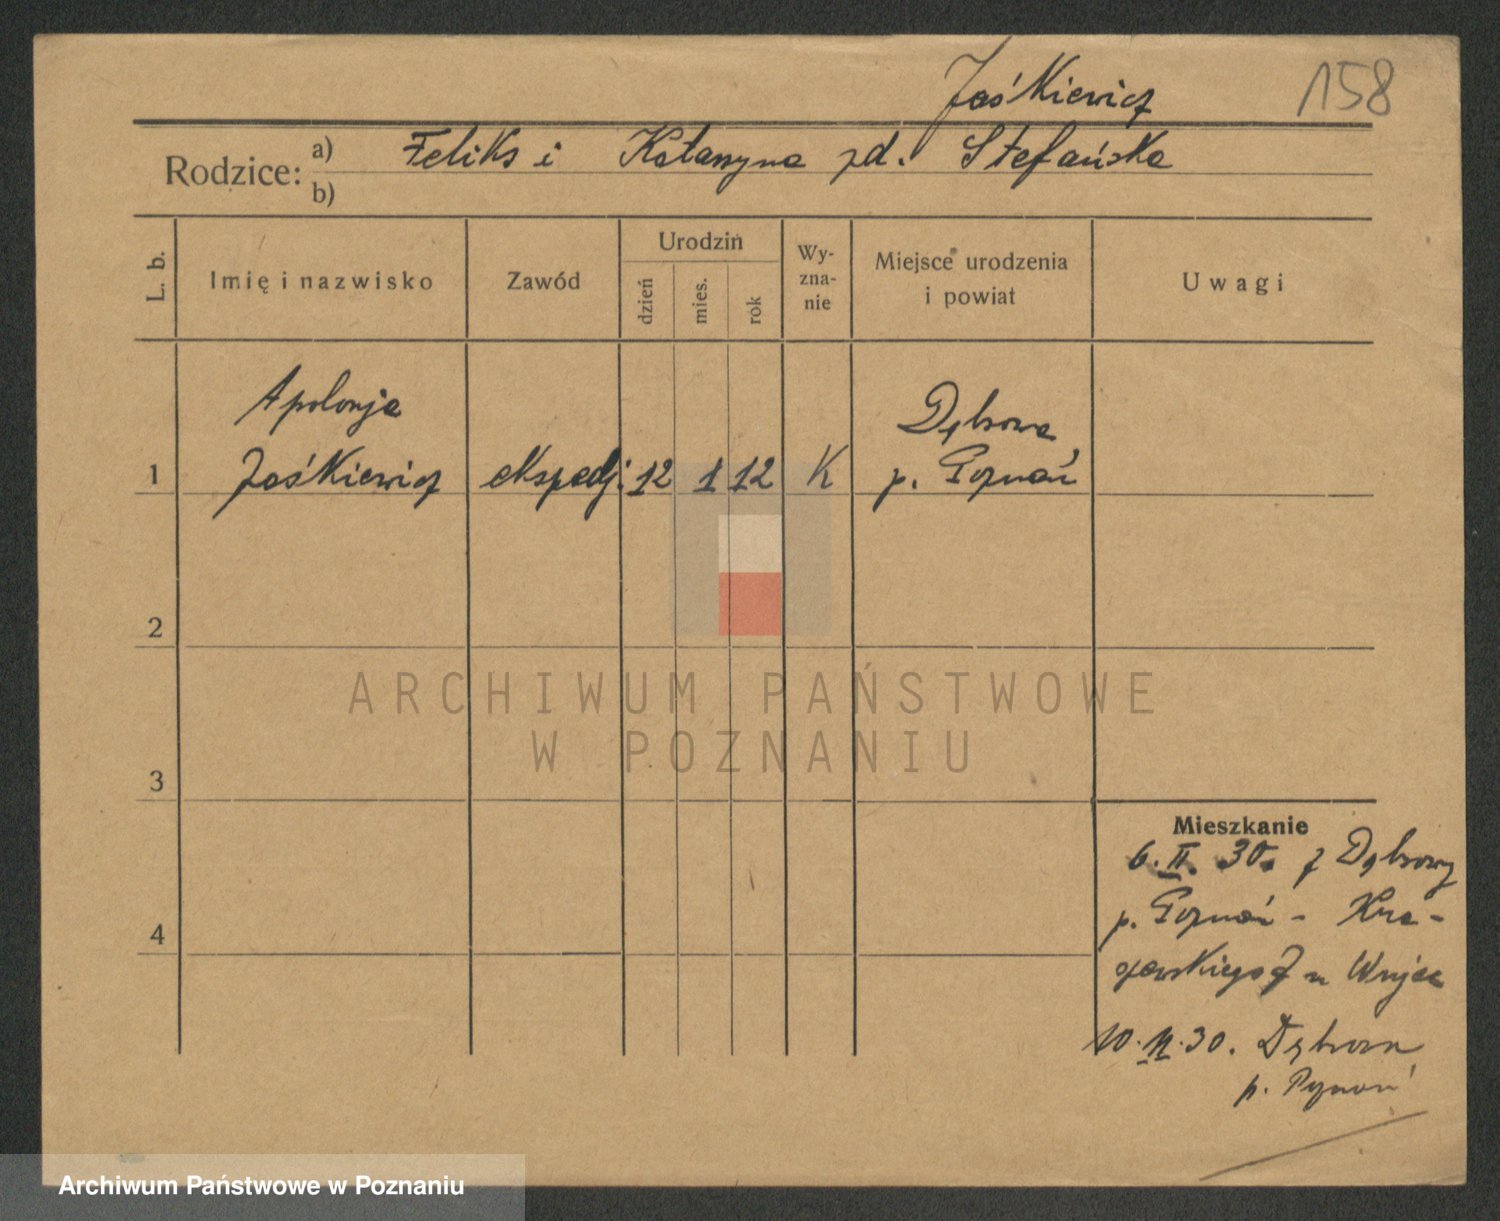 Jaśkiewicz
158
Rodzice: a) Feliks i Katarzyna zd. Stefańska
b)
L. b.
Imię i nazwisko
Zawód
Urodzin
dzień
mies.
rok
Wy-
zna-
nie
Miejsce urodzenia
i powiat
Uwagi
Apolonja
Dąbrowa
1 Jaśkiewicz ekspedj. 12 1 12 K p. Poznań
2
ARCHIWUM PAŃSTWOWE
W POZNANIU
3
Mieszkanie
6.II.30. z Dąbrowy
p. Poznań - Kra-
4
szewskiego 7 u Wuja
10.II.30. Dąbrowa
p. Poznań
Archiwum Państwowe w Poznaniu